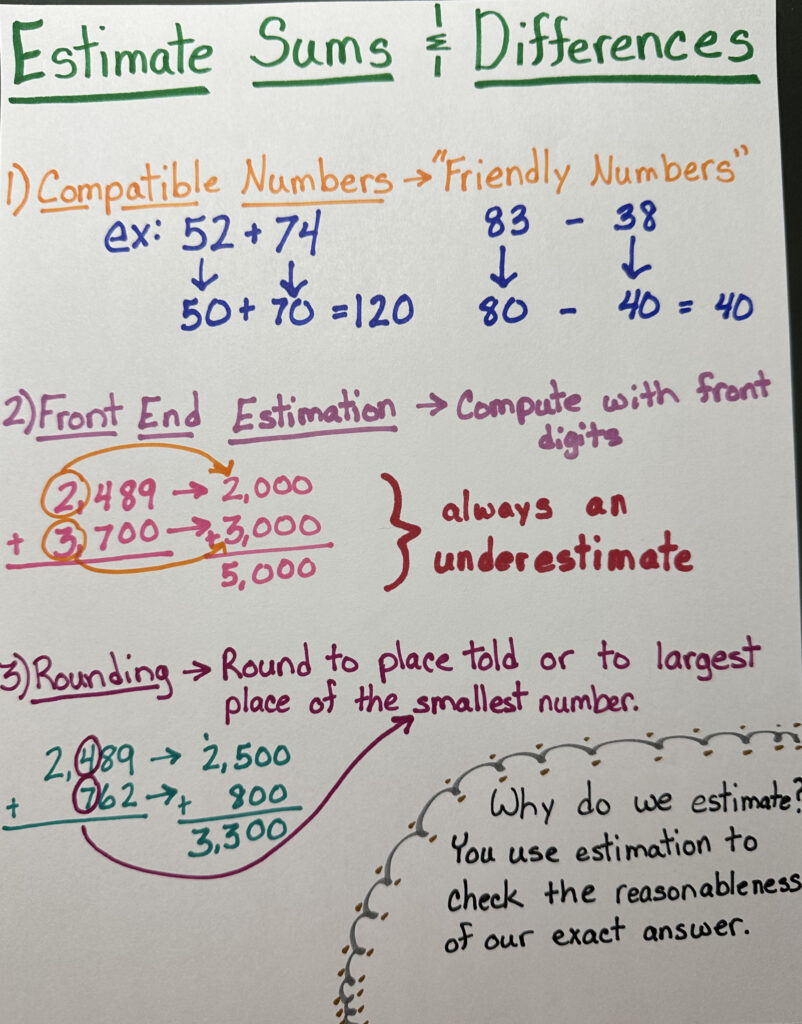 Estimate Sums & Differences
1) Compatible Numbers → "Friendly Numbers"
ex: 52 + 74
↓ ↓
50 + 70 = 120
83 - 38
↓ ↓
80 - 40 = 40
2) Front End Estimation → Compute with front
digits
2,489 → 2,000
+ 3,700 → + 3,000
5,000
always an
underestimate
3) Rounding → Round to place told or to largest
place of the smallest number.
2,489 → 2,500
+ 762 → + 800
3,300
Why do we estimate?
You use estimation to
check the reasonableness
of our exact answer.